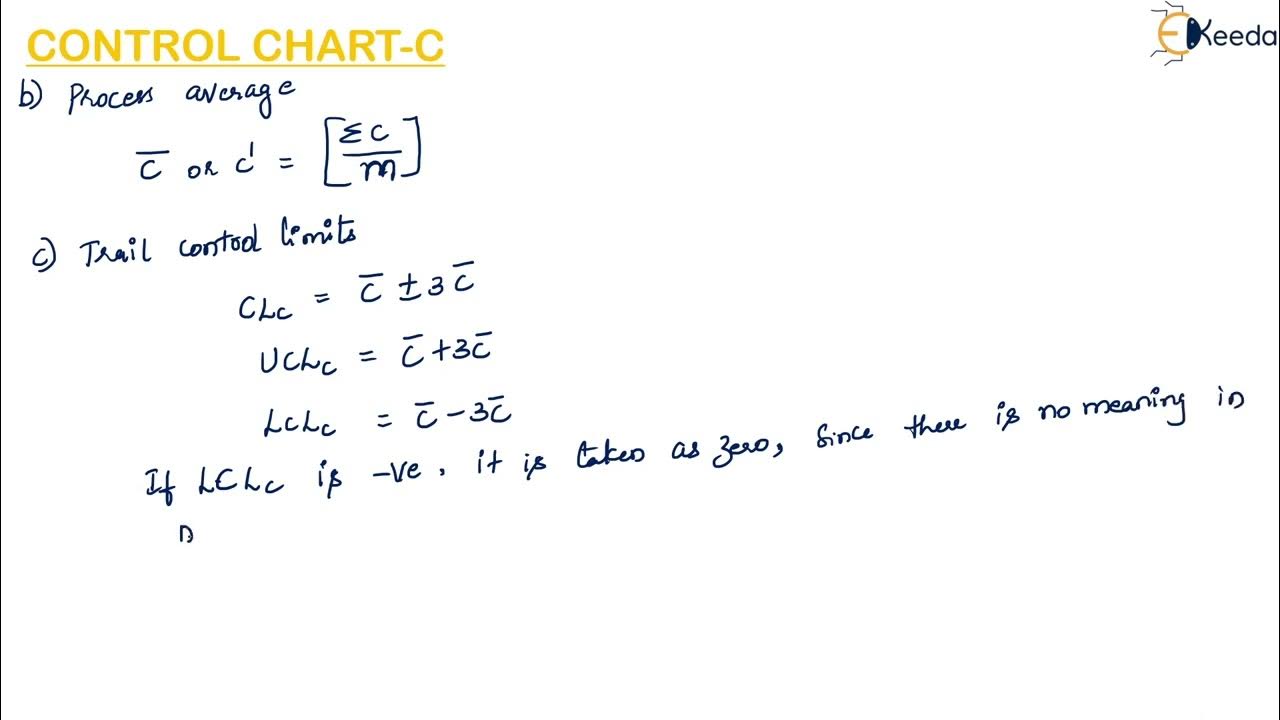 CONTROL CHART-C
EKeeda
b) Process average
c̅ or c' = [Σc/m]
c) Trail control limits
CLc = c̅ ± 3c̅
UCLc = c̅ + 3c̅
LCLc = c̅ - 3c̅
If LCLc is -ve, it is taken as zero, since there is no meaning in
n